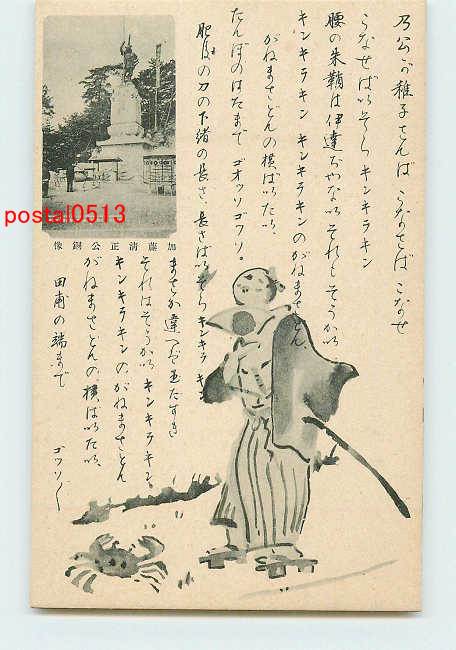 乃公が稚子さんば こなさば こなせ
こなせば いゝそら キンキラキン
腰の朱鞘は伊達ぢやない それもそうかい
キンキラキン キンキラキンのがねまさどん
がねまさどんの横ばいばい
たんぼのはたまで ゴオッソゴウソ。
肥後の刀の下緒の長さ、長さばい そら キンキラキン
まさか違へば 玉だすき
それはそうかい キンキラキン。
キンキラキンのがねまさどん
がねまさどんの横ばいばい、
田甫の端まで
ゴウソ〳〵
加藤清正公銅像
postal0513